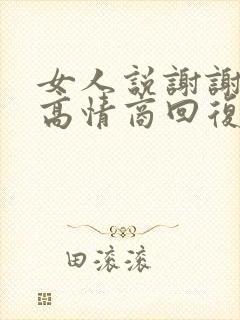 女人説謝謝
高情商回復
田滚滚